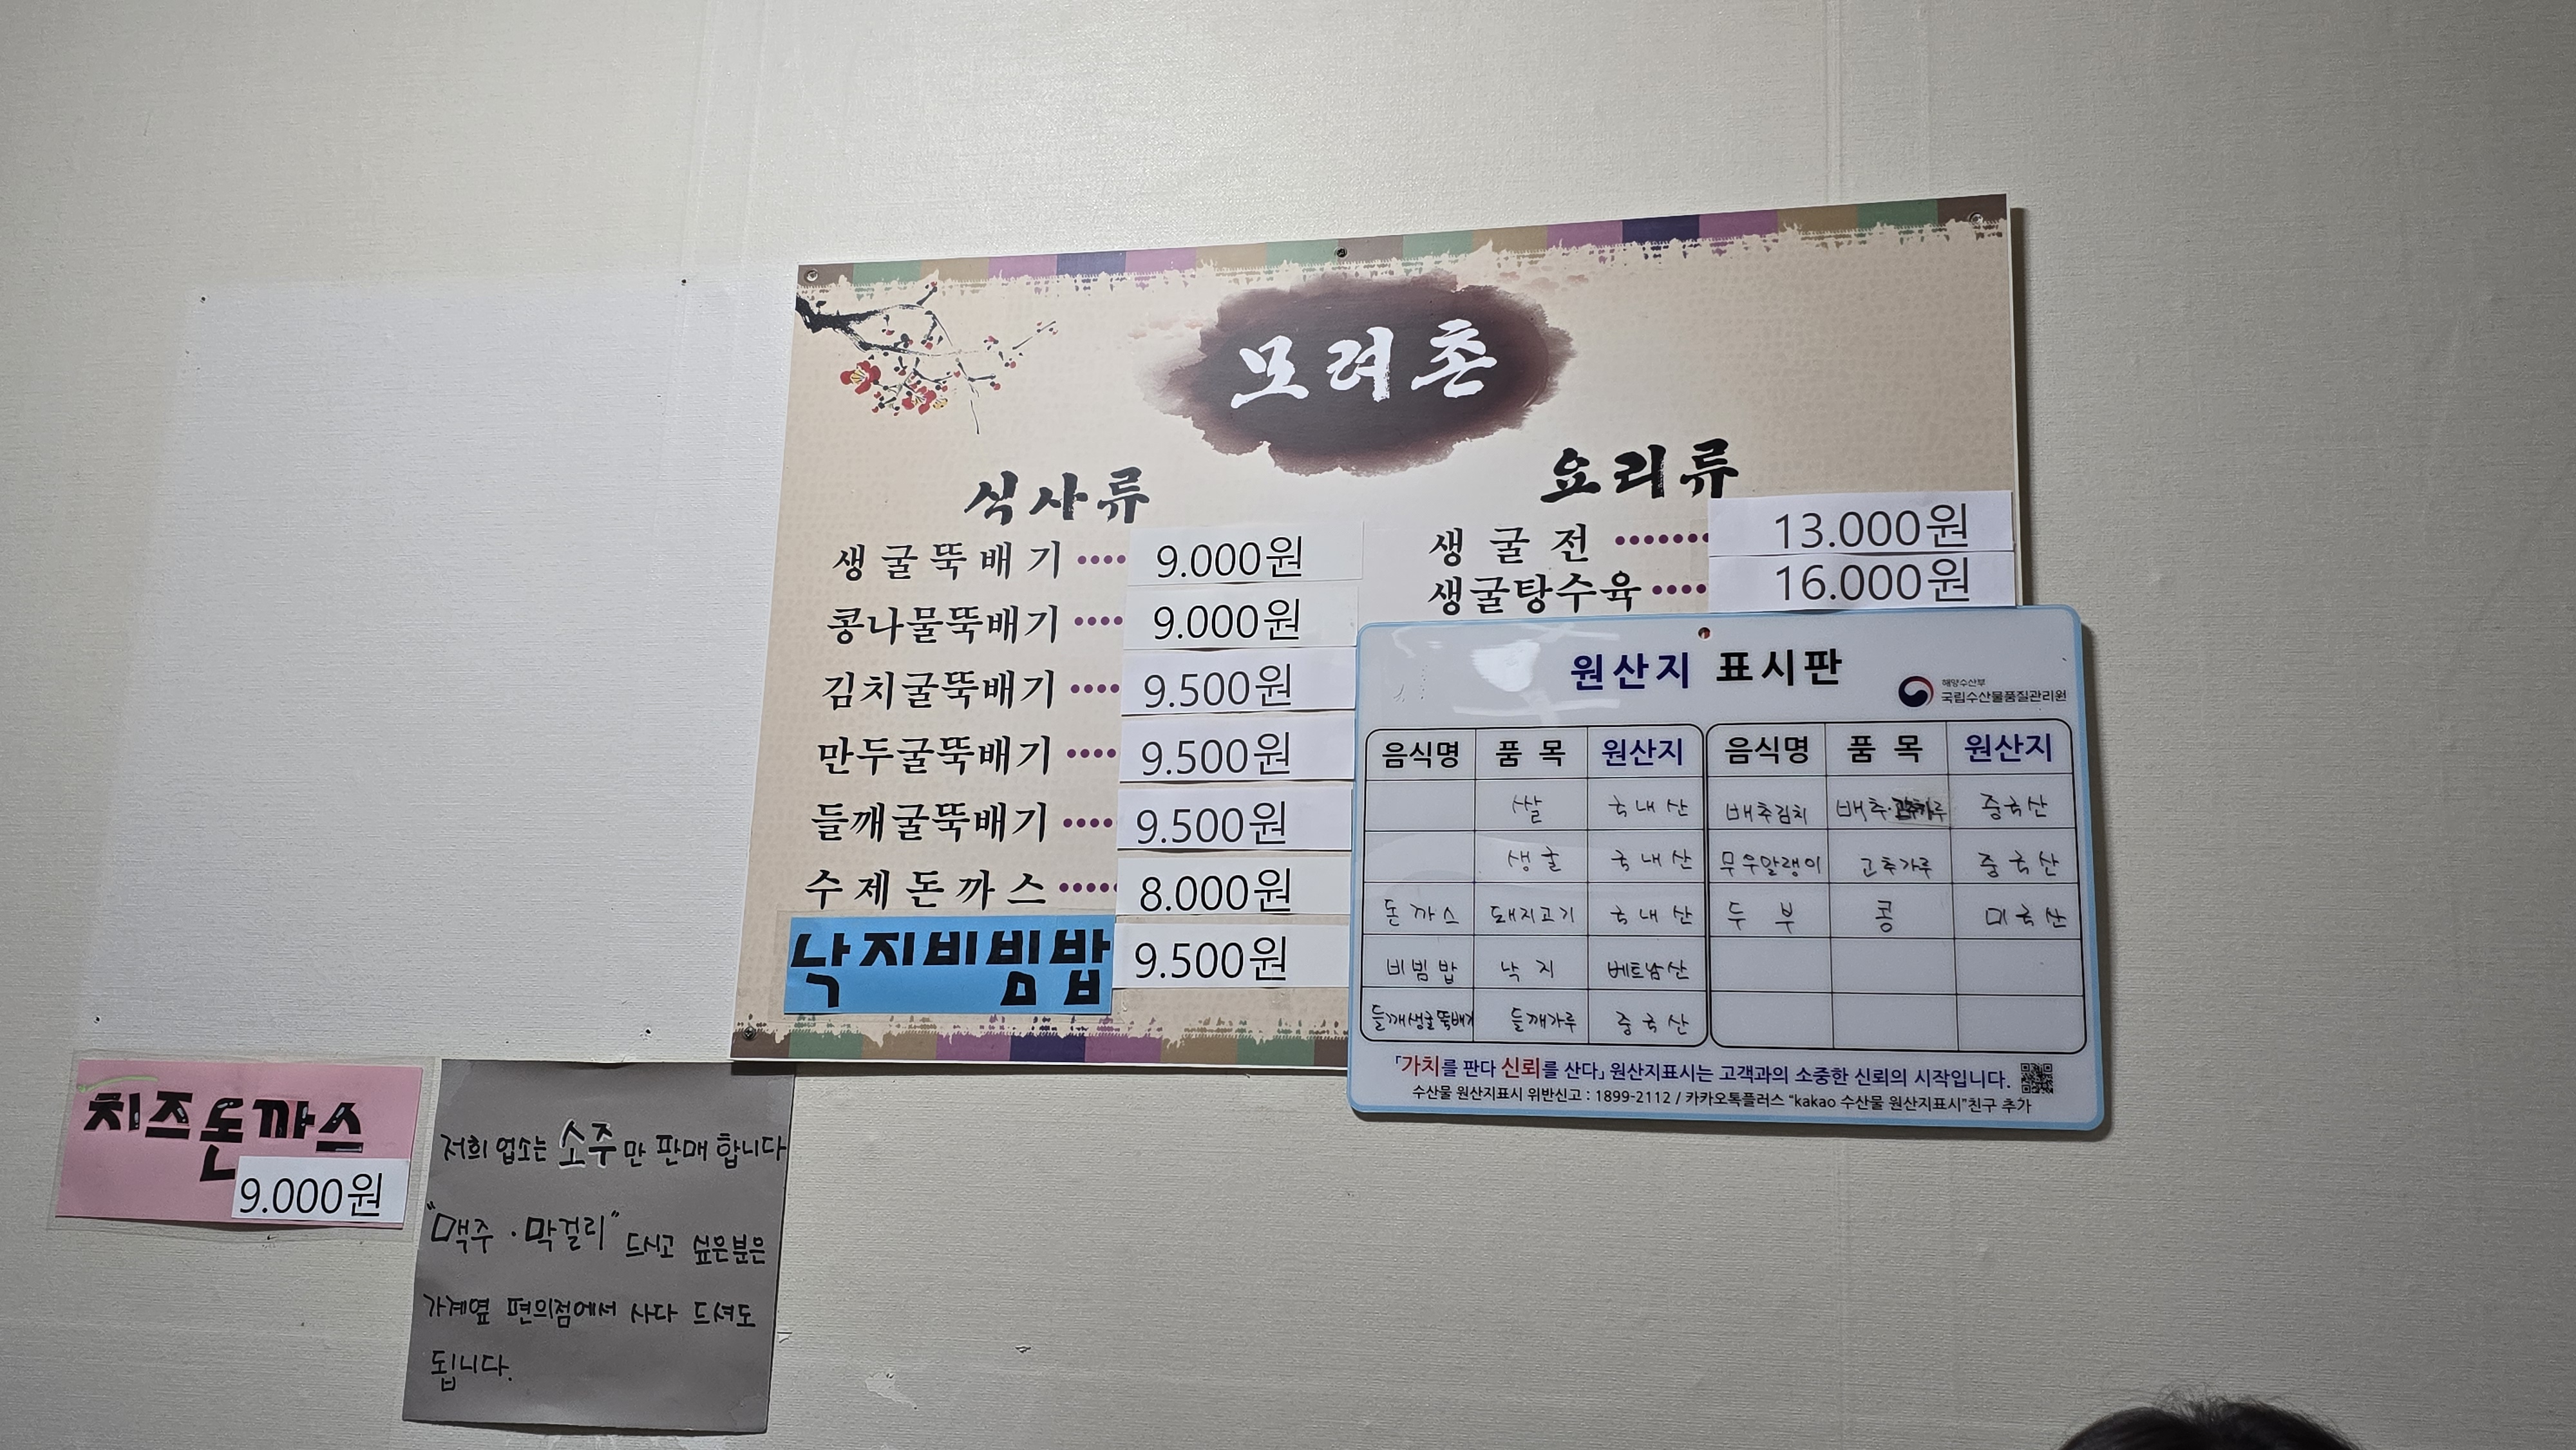 모려촌
식사류
생굴뚝배기 ···· 9.000원
콩나물뚝배기 ···· 9.000원
김치굴뚝배기 ···· 9.500원
만두굴뚝배기 ···· 9.500원
들깨굴뚝배기 ···· 9.500원
수제돈까스 ····· 8.000원
낙지비빔밥 9.500원
요리류
생굴전 ······· 13.000원
생굴탕수육 ···· 16.000원
원산지 표시판
해양수산부
국립수산물품질관리원
음식명 품 목 원산지 음식명 품 목 원산지
쌀 국내산 배추김치 배추· 중국산
생굴 국내산 무우말랭이 고추가루 중국산
돈까스 돼지고기 국내산 두부 콩 미국산
비빔밥 낙지 베트남산
들깨생굴뚝배기 들깨가루 중국산
「가치를 판다 신뢰를 산다」 원산지표시는 고객과의 소중한 신뢰의 시작입니다.
수산물 원산지표시 위반신고 : 1899-2112 / 카카오톡플러스 "kakao 수산물 원산지표시"친구 추가
치즈돈까스
9.000원
저희 업소는 소주만 판매 합니다
"맥주·막걸리" 드시고 싶은분은
가계옆 편의점에서 사다 드셔도
됩니다.